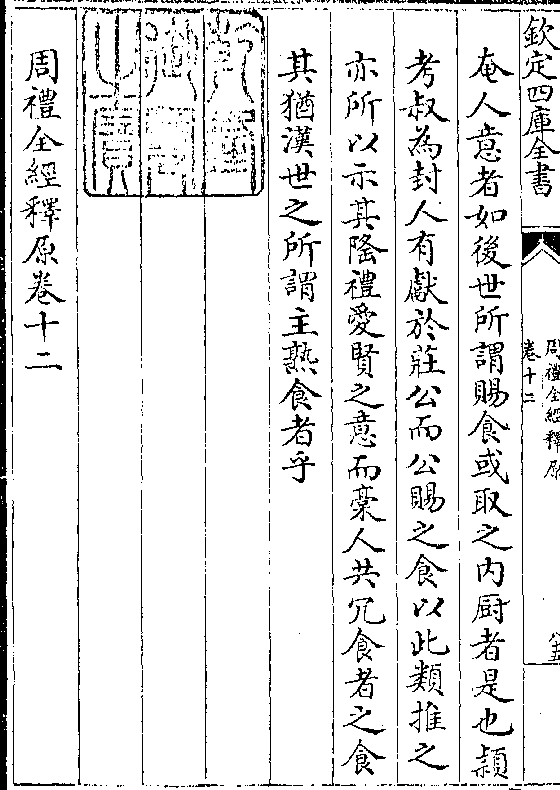 欽定四庫全書
周禮全經釋原
卷十二
奄人意者如後世所謂賜食或取之内厨者是也頴
考叔為封人有獻於莊公而公賜之食以此類推之
亦所以示其隆禮愛賢之意而稾人共冗食者之食
其猶漢世之所謂主熟食者乎
周禮全經釋原卷十二